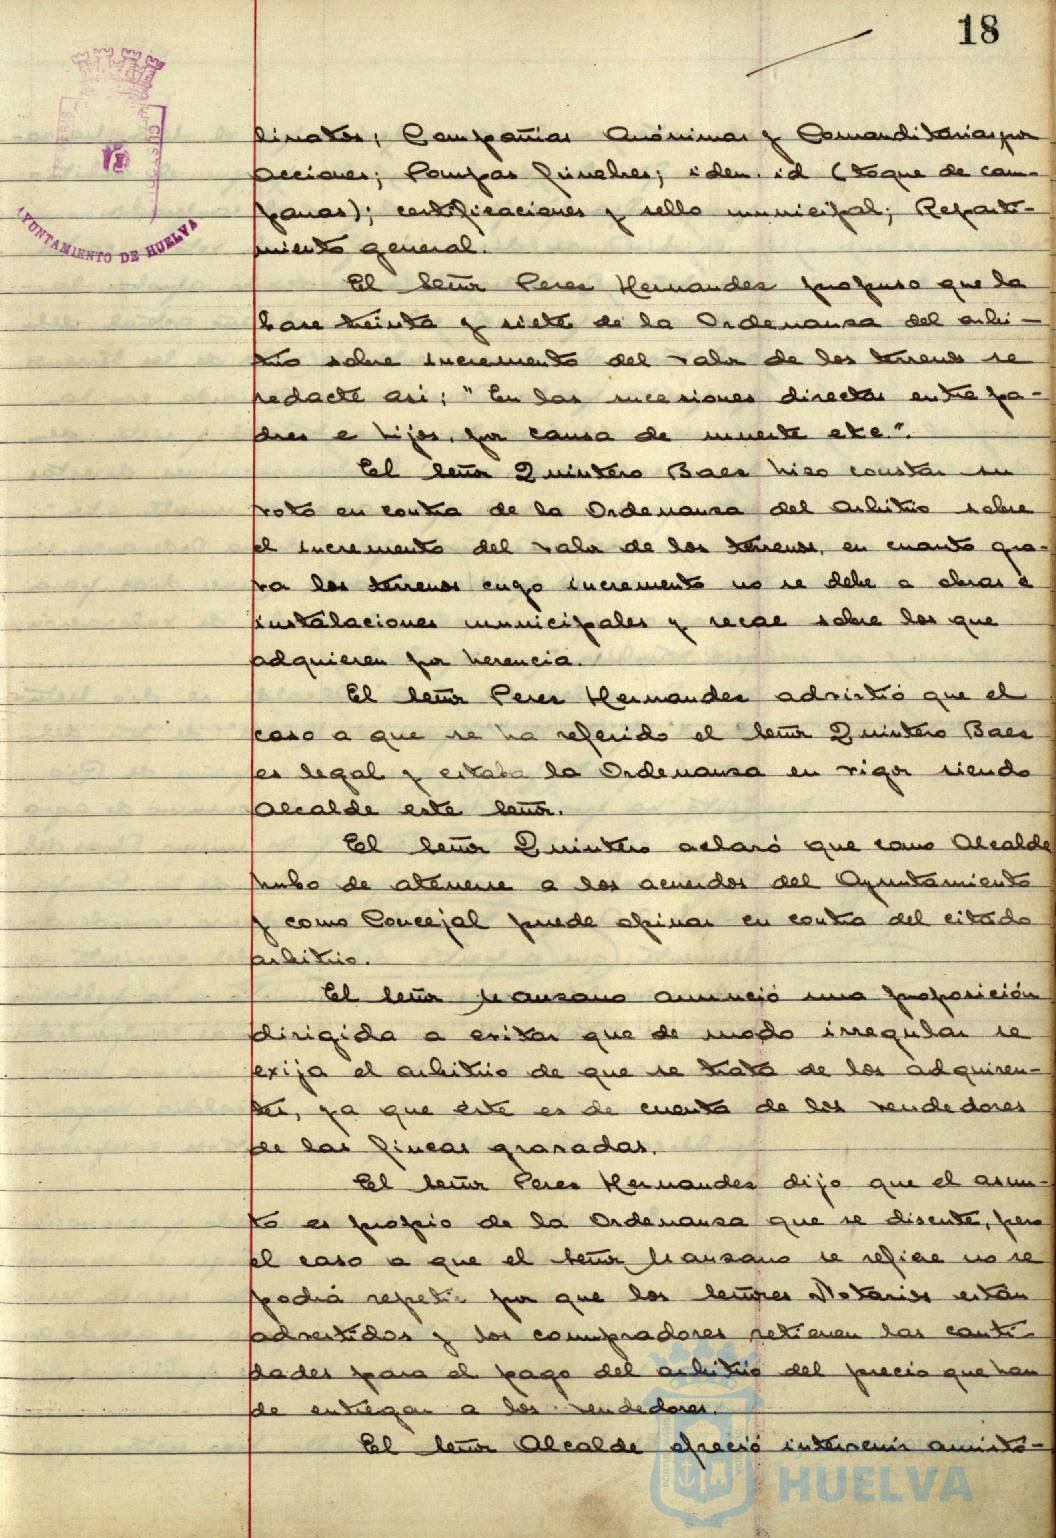 18
AYUNTAMIENTO DE HUELVA
linatos; Compañias Anónimas y Comanditarias por
acciones; Pompas fúnebres; iden. id (toque de cam-
panas); certificaciones y sello municipal; Reparti-
miento general.
El Señor Perez Hernandez propuso que la
base treinta y siete de la Ordenanza del arbi-
trio sobre incremento del valor de los terrenos se
redacte asi: "En las sucesiones directas entre pa-
dres e hijos, por causa de muerte etc.".
El Señor Quintero Baez hizo constar su
voto en contra de la Ordenanza del Arbitrio sobre
el incremento del valor de los terrenos, en cuanto gra-
va los terrenos cuyo incremento no se debe a obras e
instalaciones municipales y recae sobre los que
adquieren por herencia.
El Señor Perez Hernandez advirtió que el
caso a que se ha referido el Señor Quintero Baez
es legal y estaba la Ordenanza en vigor siendo
Alcalde este Señor.
El Señor Quintero aclaró que como Alcalde
hubo de atenerse a los acuerdos del Ayuntamiento
y como Concejal puede opinar en contra del citado
arbitrio.
El Señor Manzano anunció una proposición
dirigida a evitar que de modo irregular se
exija el arbitrio de que se trata de los adquiren-
tes, ya que este es de cuenta de los vendedores
de las fincas gravadas.
El Señor Perez Hernandez dijo que el asun-
to es propio de la Ordenanza que se discute, pero
el caso a que el Señor Manzano se refiere no se
podrá repetir por que los Señores Notarios estan
advertidos y los compradores retienen las canti-
dades para el pago del arbitrio del precio que han
de entregar a los vendedores.
El Señor Alcalde ofreció intervenir amisto-
HUELVA